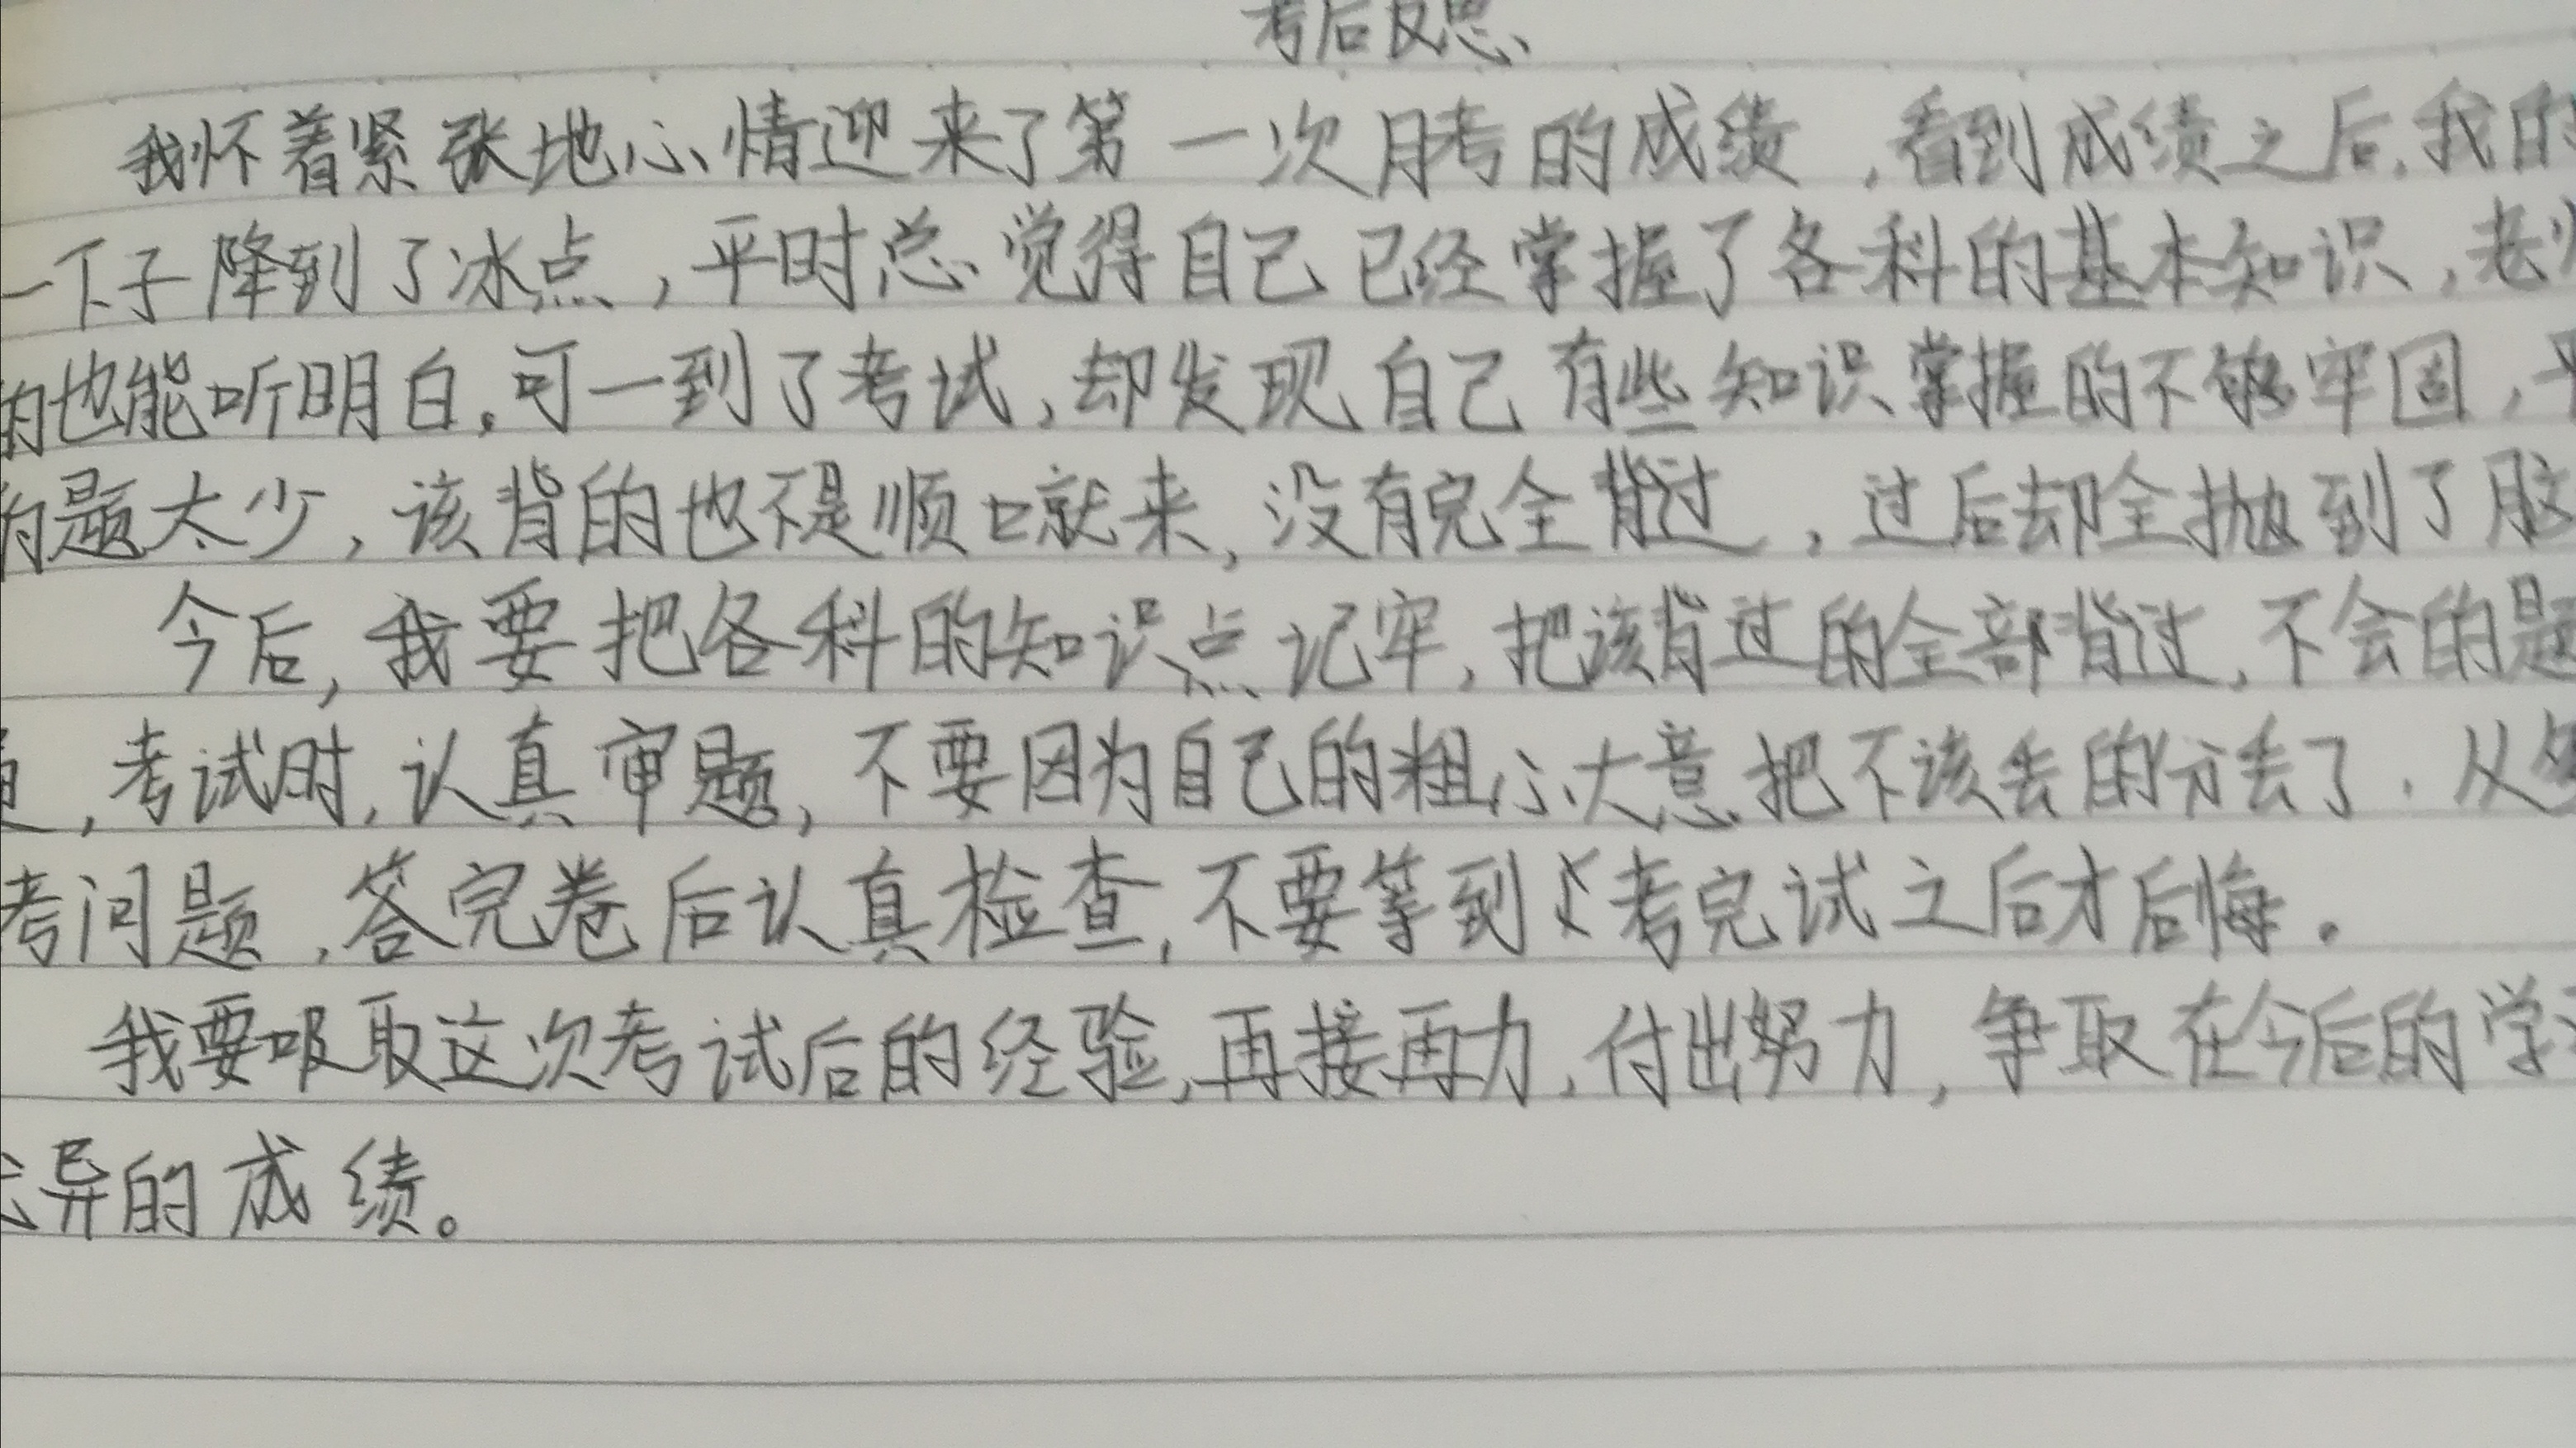 考后反思
我怀着紧张地心情迎来了第一次月考的成绩，看到成绩之后，我的
一下子降到了冰点，平时总觉得自己已经掌握了各科的基本知识，老
的也能听明白。可一到了考试，却发现自己有些知识掌握的不够牢固，
的题太少，该背的也不是顺口就来，没有完全背过，过后却全抛到了脑
今后，我要把各科的知识点记牢，把该背过的全部背过，不会的题
，考试时，认真审题，不要因为自己的粗心大意把不该丢的分丢了．从
考问题，答完卷后认真检查，不要等到考完试之后才后悔。
我要吸取这次考试后的经验，再接再力，付出努力，争取在今后的学
异的成绩。